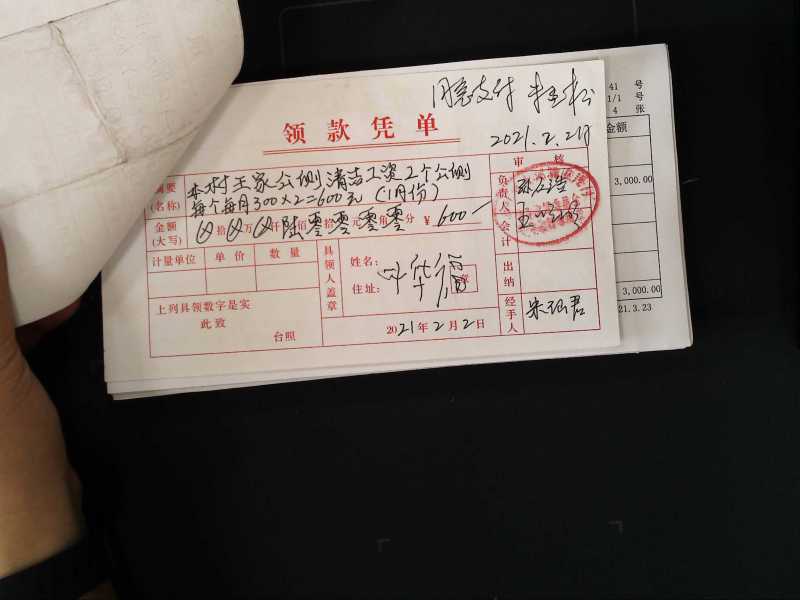 同意支付
2021.2.2日
领款凭单
审 核
摘要
(名称)
村王家公厕清洁工资2个公厕
每个每月300×2=600元(1月份)
金额
(大写)
拾 万 仟 陆 佰 零 拾 零 元 零 角 零 分 ¥600—
计量单位 单价 数量
具领人盖章
姓名:
住址:
华
章
上列具领数字是实
此致
台照
2021年2月2日
负责人
会计
出纳
经手人
朱 君
41 号
1/1 号
4 张
金额
3,000.00
3,000.00
21.3.23